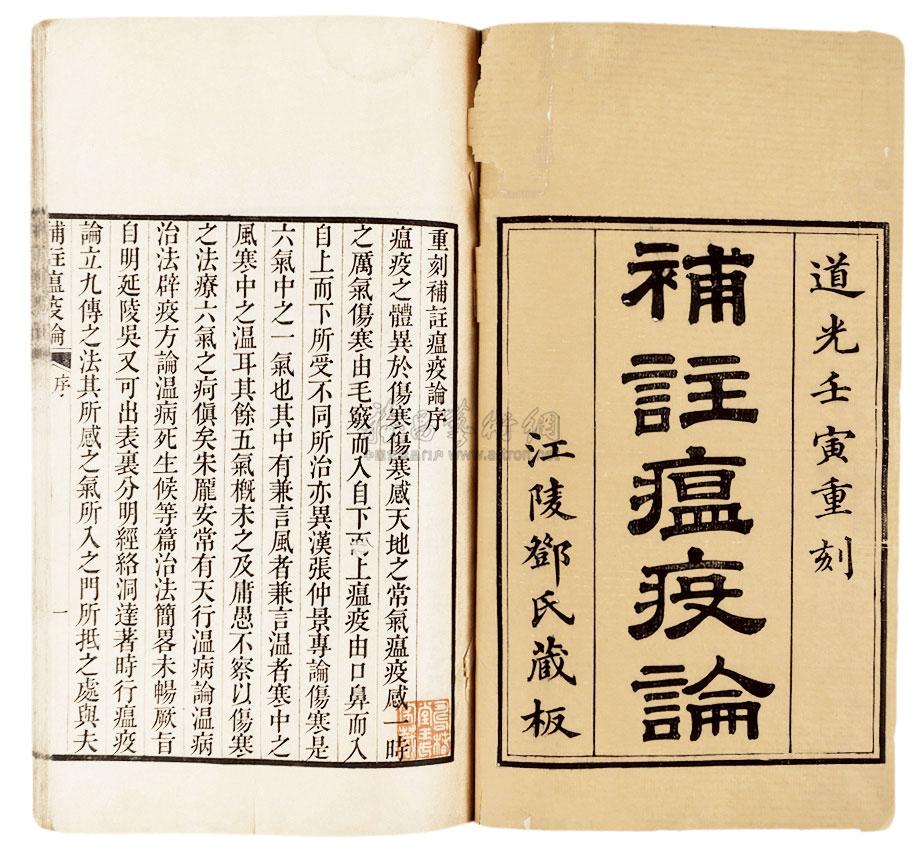 道光壬寅重刻
補註瘟疫論
江陵鄧氏藏板
重刻補註瘟疫論序
瘟疫之體異於傷寒傷寒感天地之常氣瘟疫感一時
之厲氣傷寒由毛竅而入自下而上瘟疫由口鼻而入
自上而下所受不同所治亦異漢張仲景專論傷寒是
六氣中之一氣也其中有兼言風者兼言温者寒中之
風寒中之温耳其餘五氣概未之及庸愚不察以傷寒
之法療六氣之疴傎矣宋龐安常有天行温病論温病
治法辟疫方論温病死生候等篇治法簡畧未暢厥旨
自明延陵吳又可出表裏分明經絡洞達著時行瘟疫
論立九傳之法其所感之氣所入之門所抵之處與夫
補註瘟疫論 序 一